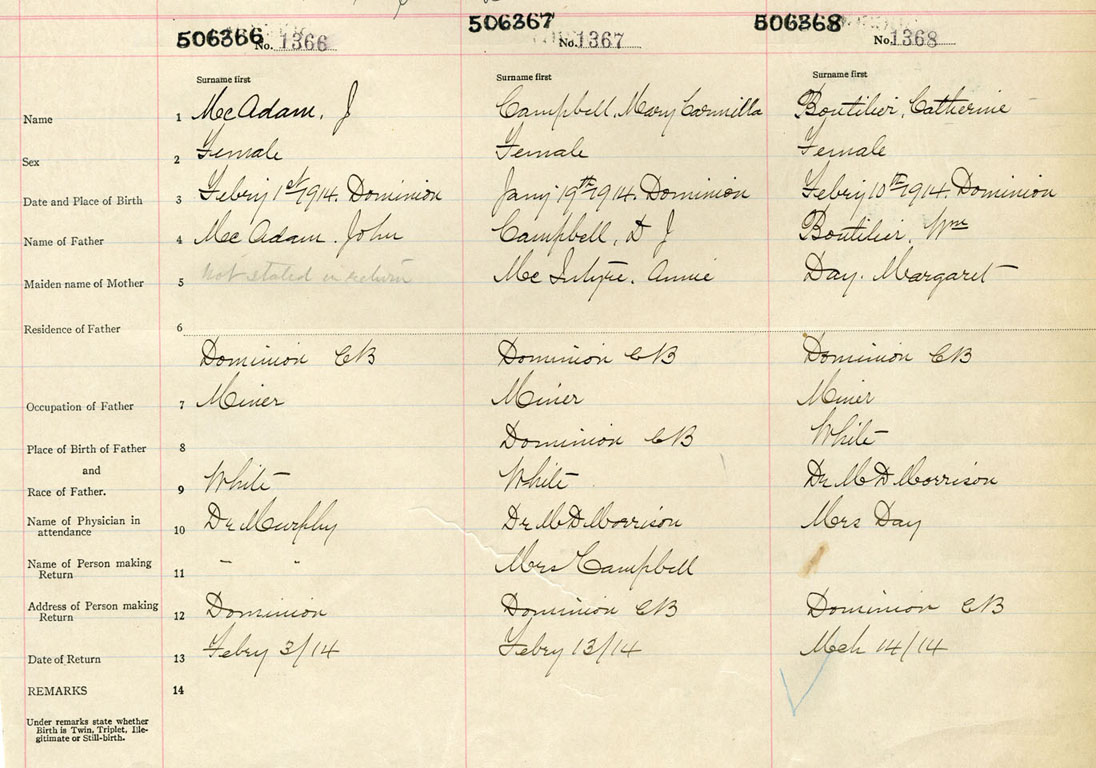 506366 No. 1366 506367 No. 1367 506368 No. 1368
Surname first Surname first Surname first
Name 1 McAdam, J Campbell, Mary Carmilla Boutilier, Catherine
Sex 2 Female Female Female
Date and Place of Birth 3 Febry 1st 1914. Dominion Jany 19th 1914. Dominion Febry 10th 1914. Dominion
Name of Father 4 McAdam. John Campbell, D J Boutilier, Wm
Maiden name of Mother 5 Not stated in return McIntyre. Annie Day. Margaret
Residence of Father 6
Dominion CB Dominion CB Dominion CB
Occupation of Father 7 Miner Miner Miner
Place of Birth of Father 8 Dominion CB White
and
Race of Father. 9 White White Dr McD Morrison
Name of Physician in attendance 10 Dr Murphy Dr McD Morrison Mrs Day
Name of Person making Return 11 " " Mrs Campbell
Address of Person making Return 12 Dominion Dominion CB Dominion CB
Date of Return 13 Febry 3/14 Febry 13/14 Mch 14/14
REMARKS 14
Under remarks state whether
Birth is Twin, Triplet, Ille-
gitimate or Still-birth.